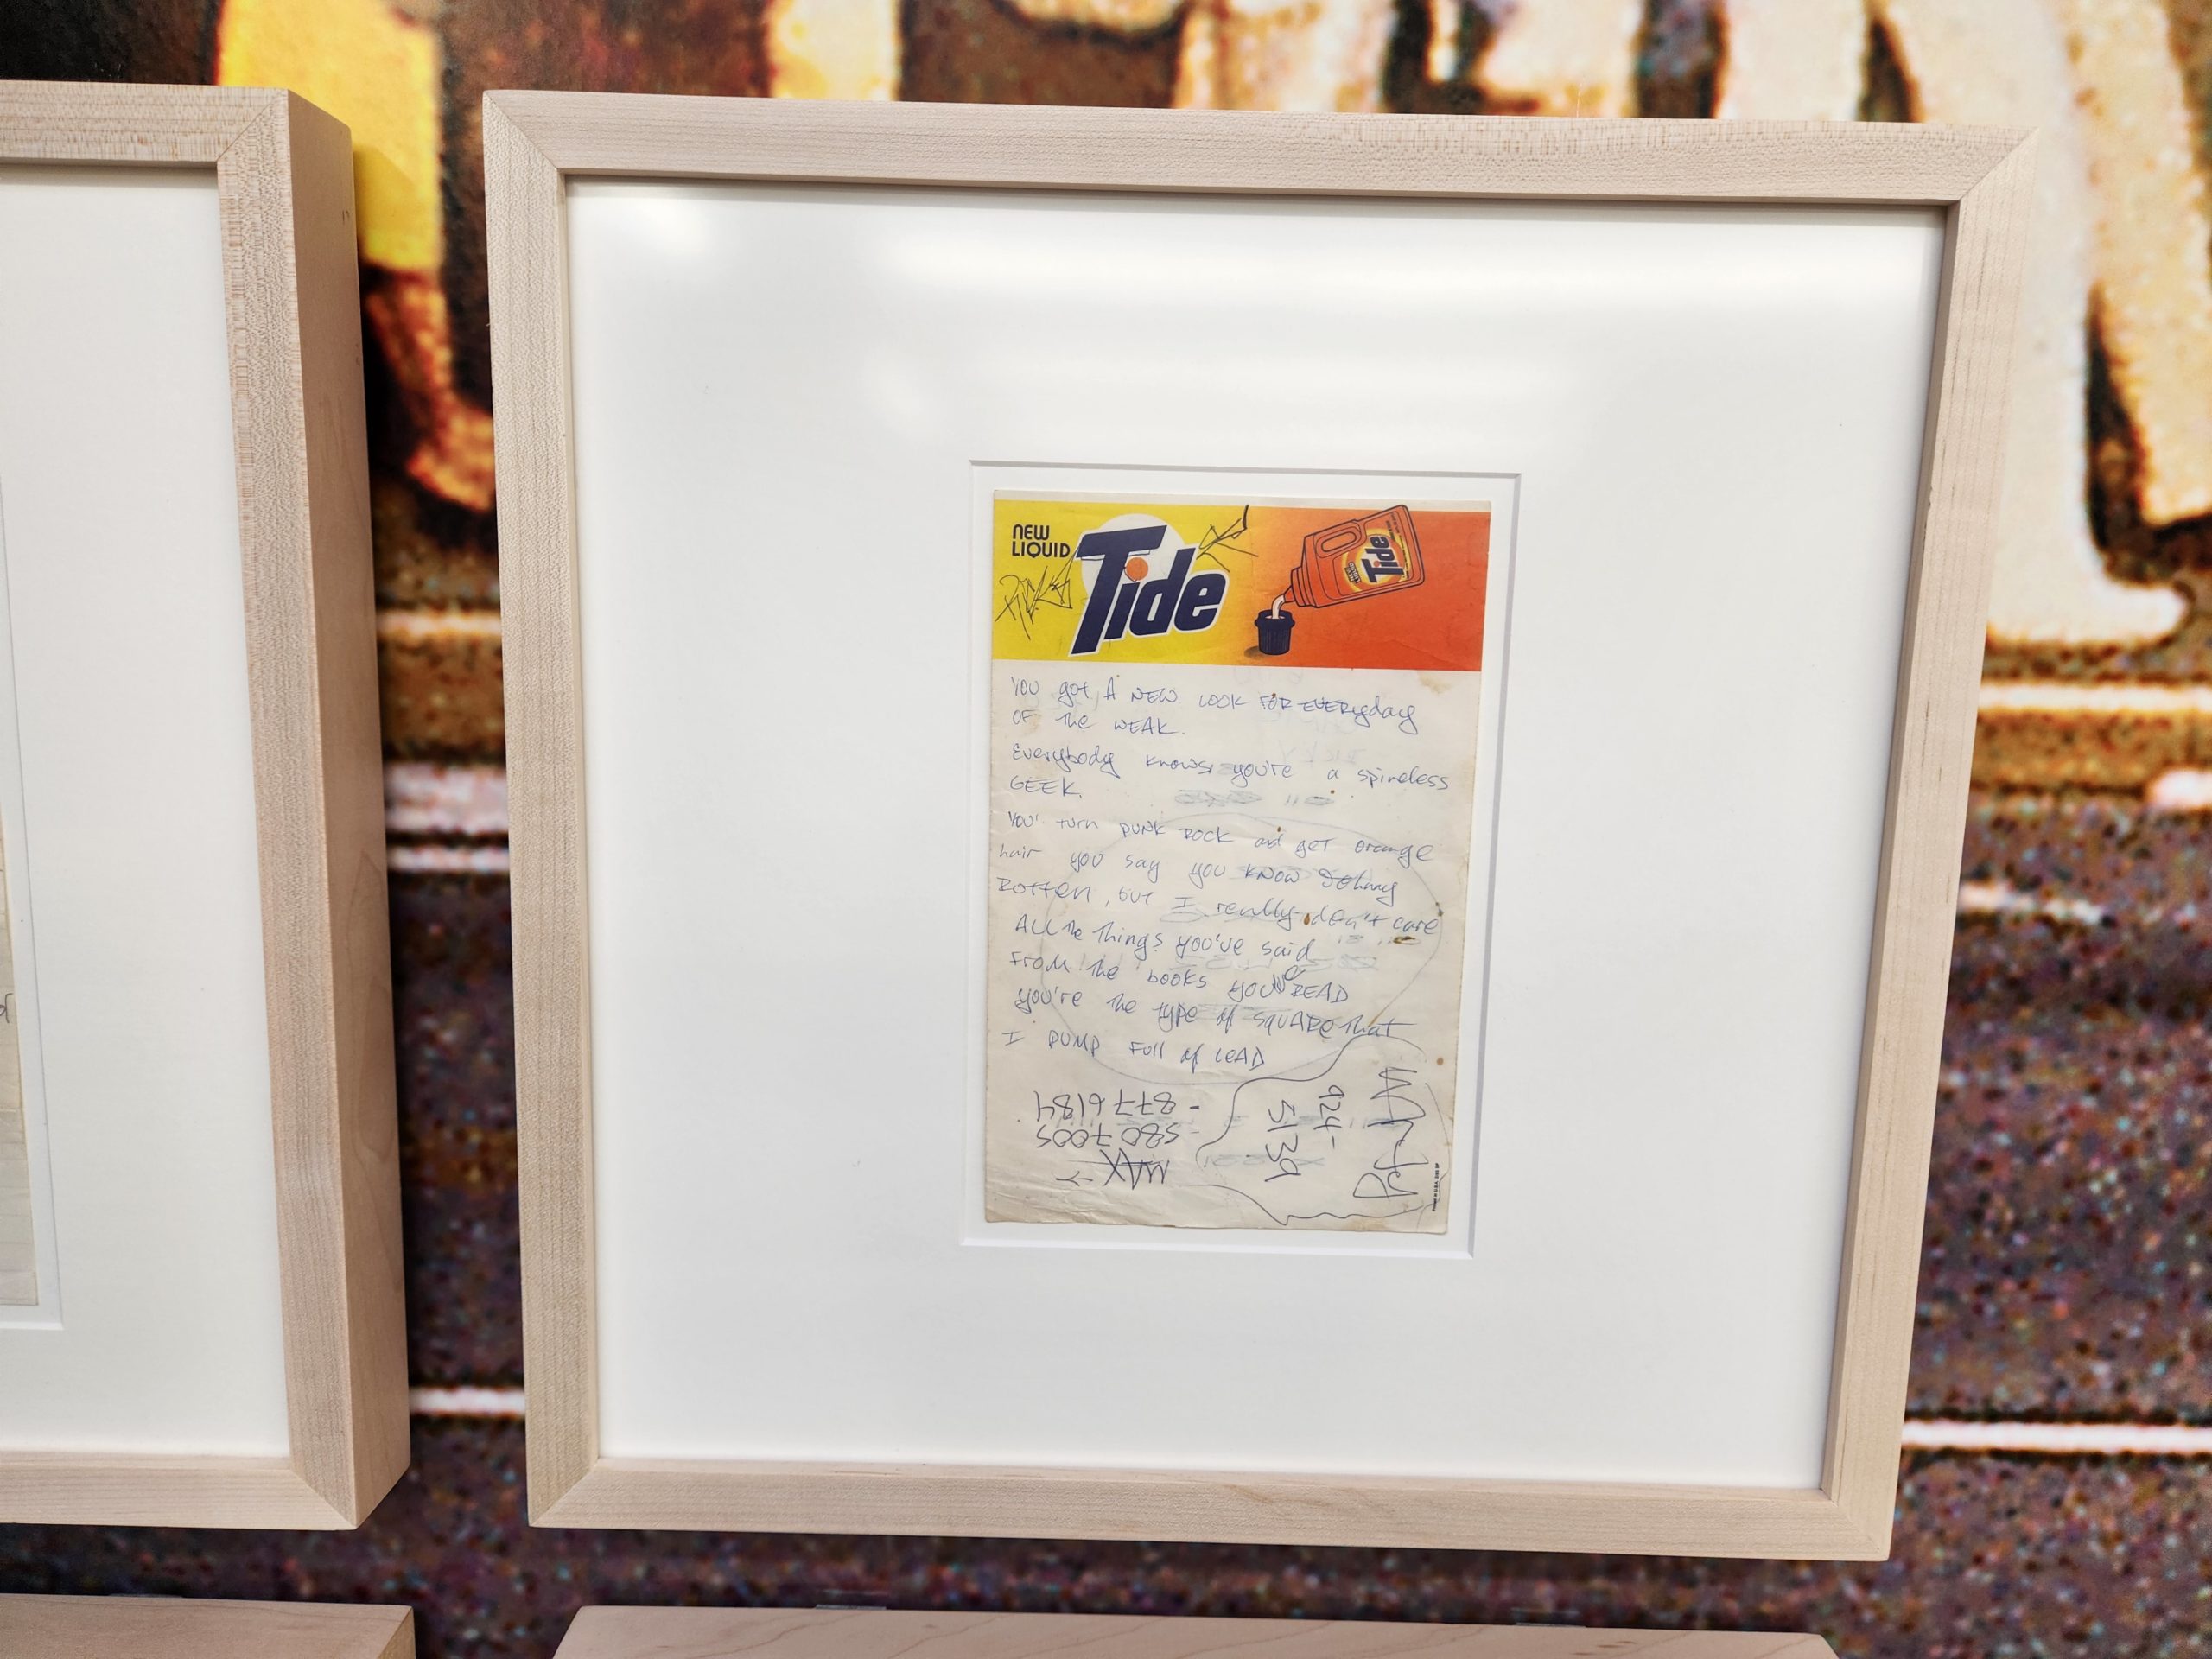 NEW
LIQUID
Tide
Tide
YOU got A NEW LOOK FOR EVERYday
OF The WEAK.
Everybody knows you're a spineless
GEEK.
YOU turn PUNK ROCK and get orange
hair you say you KNOW Johnny
Rotten, but I really don't care
ALL The Things you've said
From The books you READ
you're The type of SQUARE That
I PUMP Full of LEAD
- 877 6184
580 7005
MAX
924-
5139